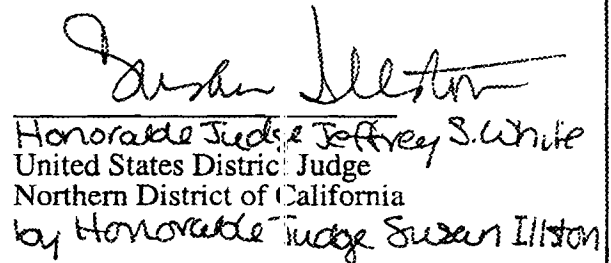 Susan Illston
Honorable Judge Jeffrey S. White
United States District Judge
Northern District of California
by Honorable Judge Susan Illston